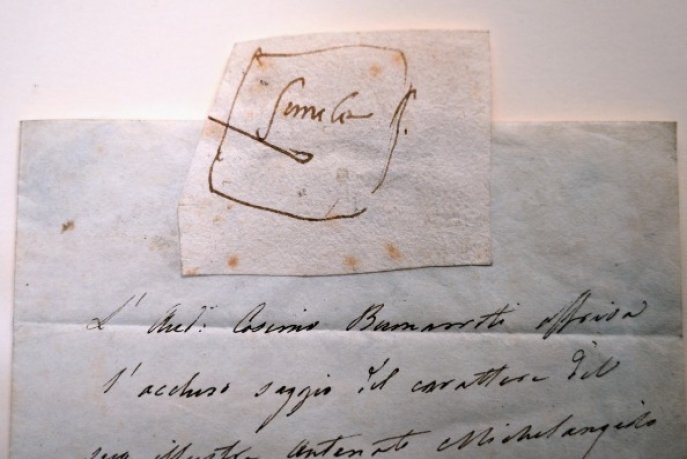 L' Aud: Cosimo Buonarroti offriva
l'accluso saggio del carattere del
suo illustre Antenato Michelangelo